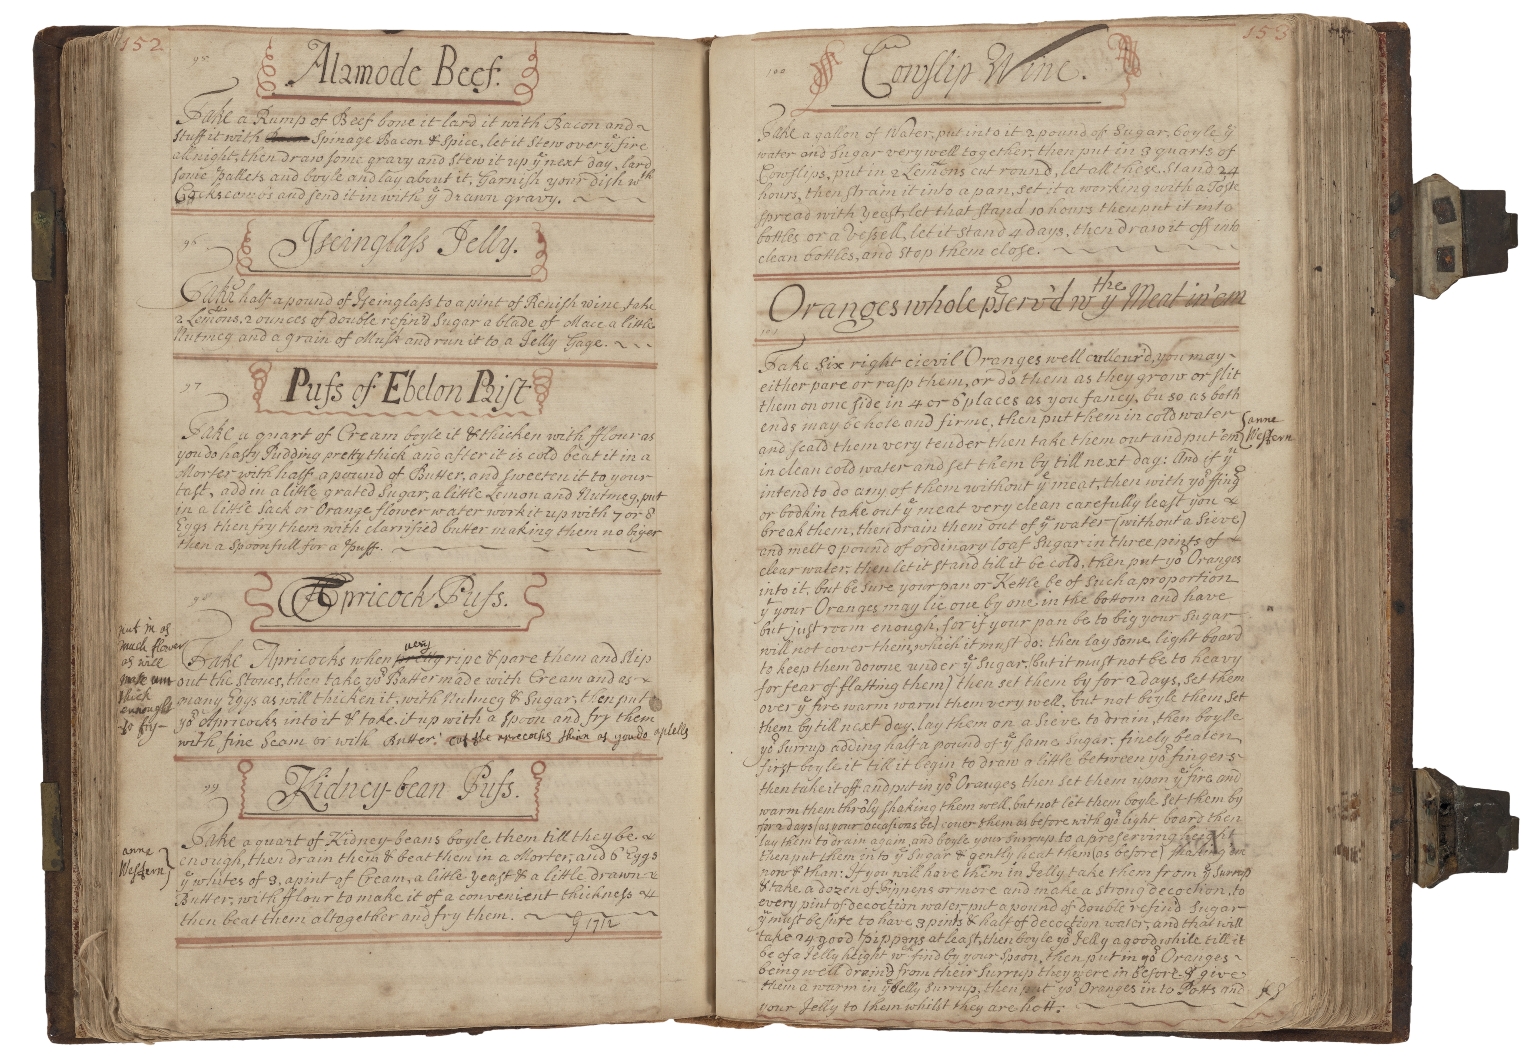 152
95
Alamode Beef.
Take a Rump of Beef bone it lard it with Bacon and
stuff it with Spinage Bacon & Spice, let it stew over ye fire
all night, then draw some gravy and stew it up ye next day, lard
some Pallets and boyle and lay about it, Garnish your dish wth
Cockscoms and send it in with ye drawn gravy.
96
Iseinglass Jelly.
Take half a pound of Iseinglass to a pint of Renish wine, take
2 Lemons, 2 ounces of double refin'd Sugar a blade of Mace a little
Nutmeg and a grain of Musk and run it to a Jelly Gage.
97
Pufs of Ebelon Rist
Take a quart of Cream boyle it & thicken with fflour as
you do hasty Pudding pretty thick and after it is cold beat it in a
Morter with half a pound of Butter, and sweeten it to your
tast, add in a little grated Sugar, a little Lemon and Nutmeg, put
in a little Sack or Orange flower water work it up with 7 or 8
Eggs then fry them with clarrified butter making them no biger
then a spoonfull for a Puff.
98
Apricock Pufs.
put in as
much flower
as will
make um
thick
ennough
to fry
very
Take Apricocks when pretty ripe & pare them and slip
out the Stones, then take yor Batter made with Cream and as
many Eggs as will thicken it, with Nutmeg & Sugar, then put
yor Apricocks into it & take it up with a spoon and fry them
with fine Seam or with Butter. cut the aprecocks thinn as you do aplells
99
Kidney-bean Pufs.
anne
Western
Take a quart of Kidney-beans boyle them till they be
enough, then drain them & beat them in a Morter, and 6 Eggs
ye whites of 3, a pint of Cream, a little yeast & a little drawn
Butter, with fflour to make it of a convenient thickness &
then beat them altogether and fry them.
1712
153
100
Cowslip Wine.
Take a gallon of Water, put into it 2 pound of Sugar, boyle ye
water and Sugar very well together, then put in 3 quarts of
Cowslips, put in 2 Lemons cut round, let all these stand 24
hours, then strain it into a pan, set it a working with a Toste
spread with Yeast, let that stand 10 hours then put it into
bottles or a vessell, let it stand 4 days, then draw it off into
clean bottles, and stop them close.
the
Oranges whole p'serv'd wth ye Meat in 'em
101
Take six right cievil Oranges well cullour'd, you may
either pare or rasp them, or do them as they grow or slit
them on one side in 4 or 6 places as you fancy, but so as both
ends may be hole and firme, then put them in cold water
and scald them very tender then take them out and put 'em
anne
Western
in clean cold water and set them by till next day: And if yu
intend to do any of them without ye meat, then with yor ffingr
or bodkin take out ye meat very clean carefully least you
break them, then drain them out of ye water (without a Sieve)
and melt 2 pound of ordinary loaf Sugar in three pints of
clear water, then let it stand till it be cold, then put yor Oranges
into it, but be sure your pan or Kettle be of such a proportion
yt your Oranges may lie one by one in the bottom and have
but just room enough, for if your pan be to big your Sugar
will not cover them, which it must do: then lay some light board
to keep them downe under ye Sugar, (but it must not be to heavy
for fear of flatting them) then set them by for 2 days, set them
over ye fire warm warm them very well, but not boyle them set
them by till next day, lay them on a Sieve to drain, then boyle
yor Surrup adding half a pound of ye same Sugar, finely beaten
first boyle it till it begin to draw a little between yor fingers
then take it off and put in yor Oranges then set them upon ye fire and
warm them throly shaking them well, but not let them boyle set them by
for 2 days (as your occasions be) cover them as before with yor light board then
lay them to drain again, and boyle your Surrup to a preserving height
then put them into ye Sugar & gently heat them (as before) shaking 'em
now & than: If you will have them in Jelly take them from ye Surrup
& take a dozen of Pippens or more and make a strong decoction, to
every pint of decoction water, put a pound of double refin'd Sugar
yu must be sure to have 3 pints & half of decoction water, and that will
take 24 good Pippens at least, then boyle yor Jelly a good while till it
be of a Jelly height wch find by your Spoon, then put in yor Oranges
being well drain'd from their Surrup they were in before & give
them a warm in ye Jelly Surrup, then put yor Oranges into Potts and
your Jelly to them whilst they are hott.